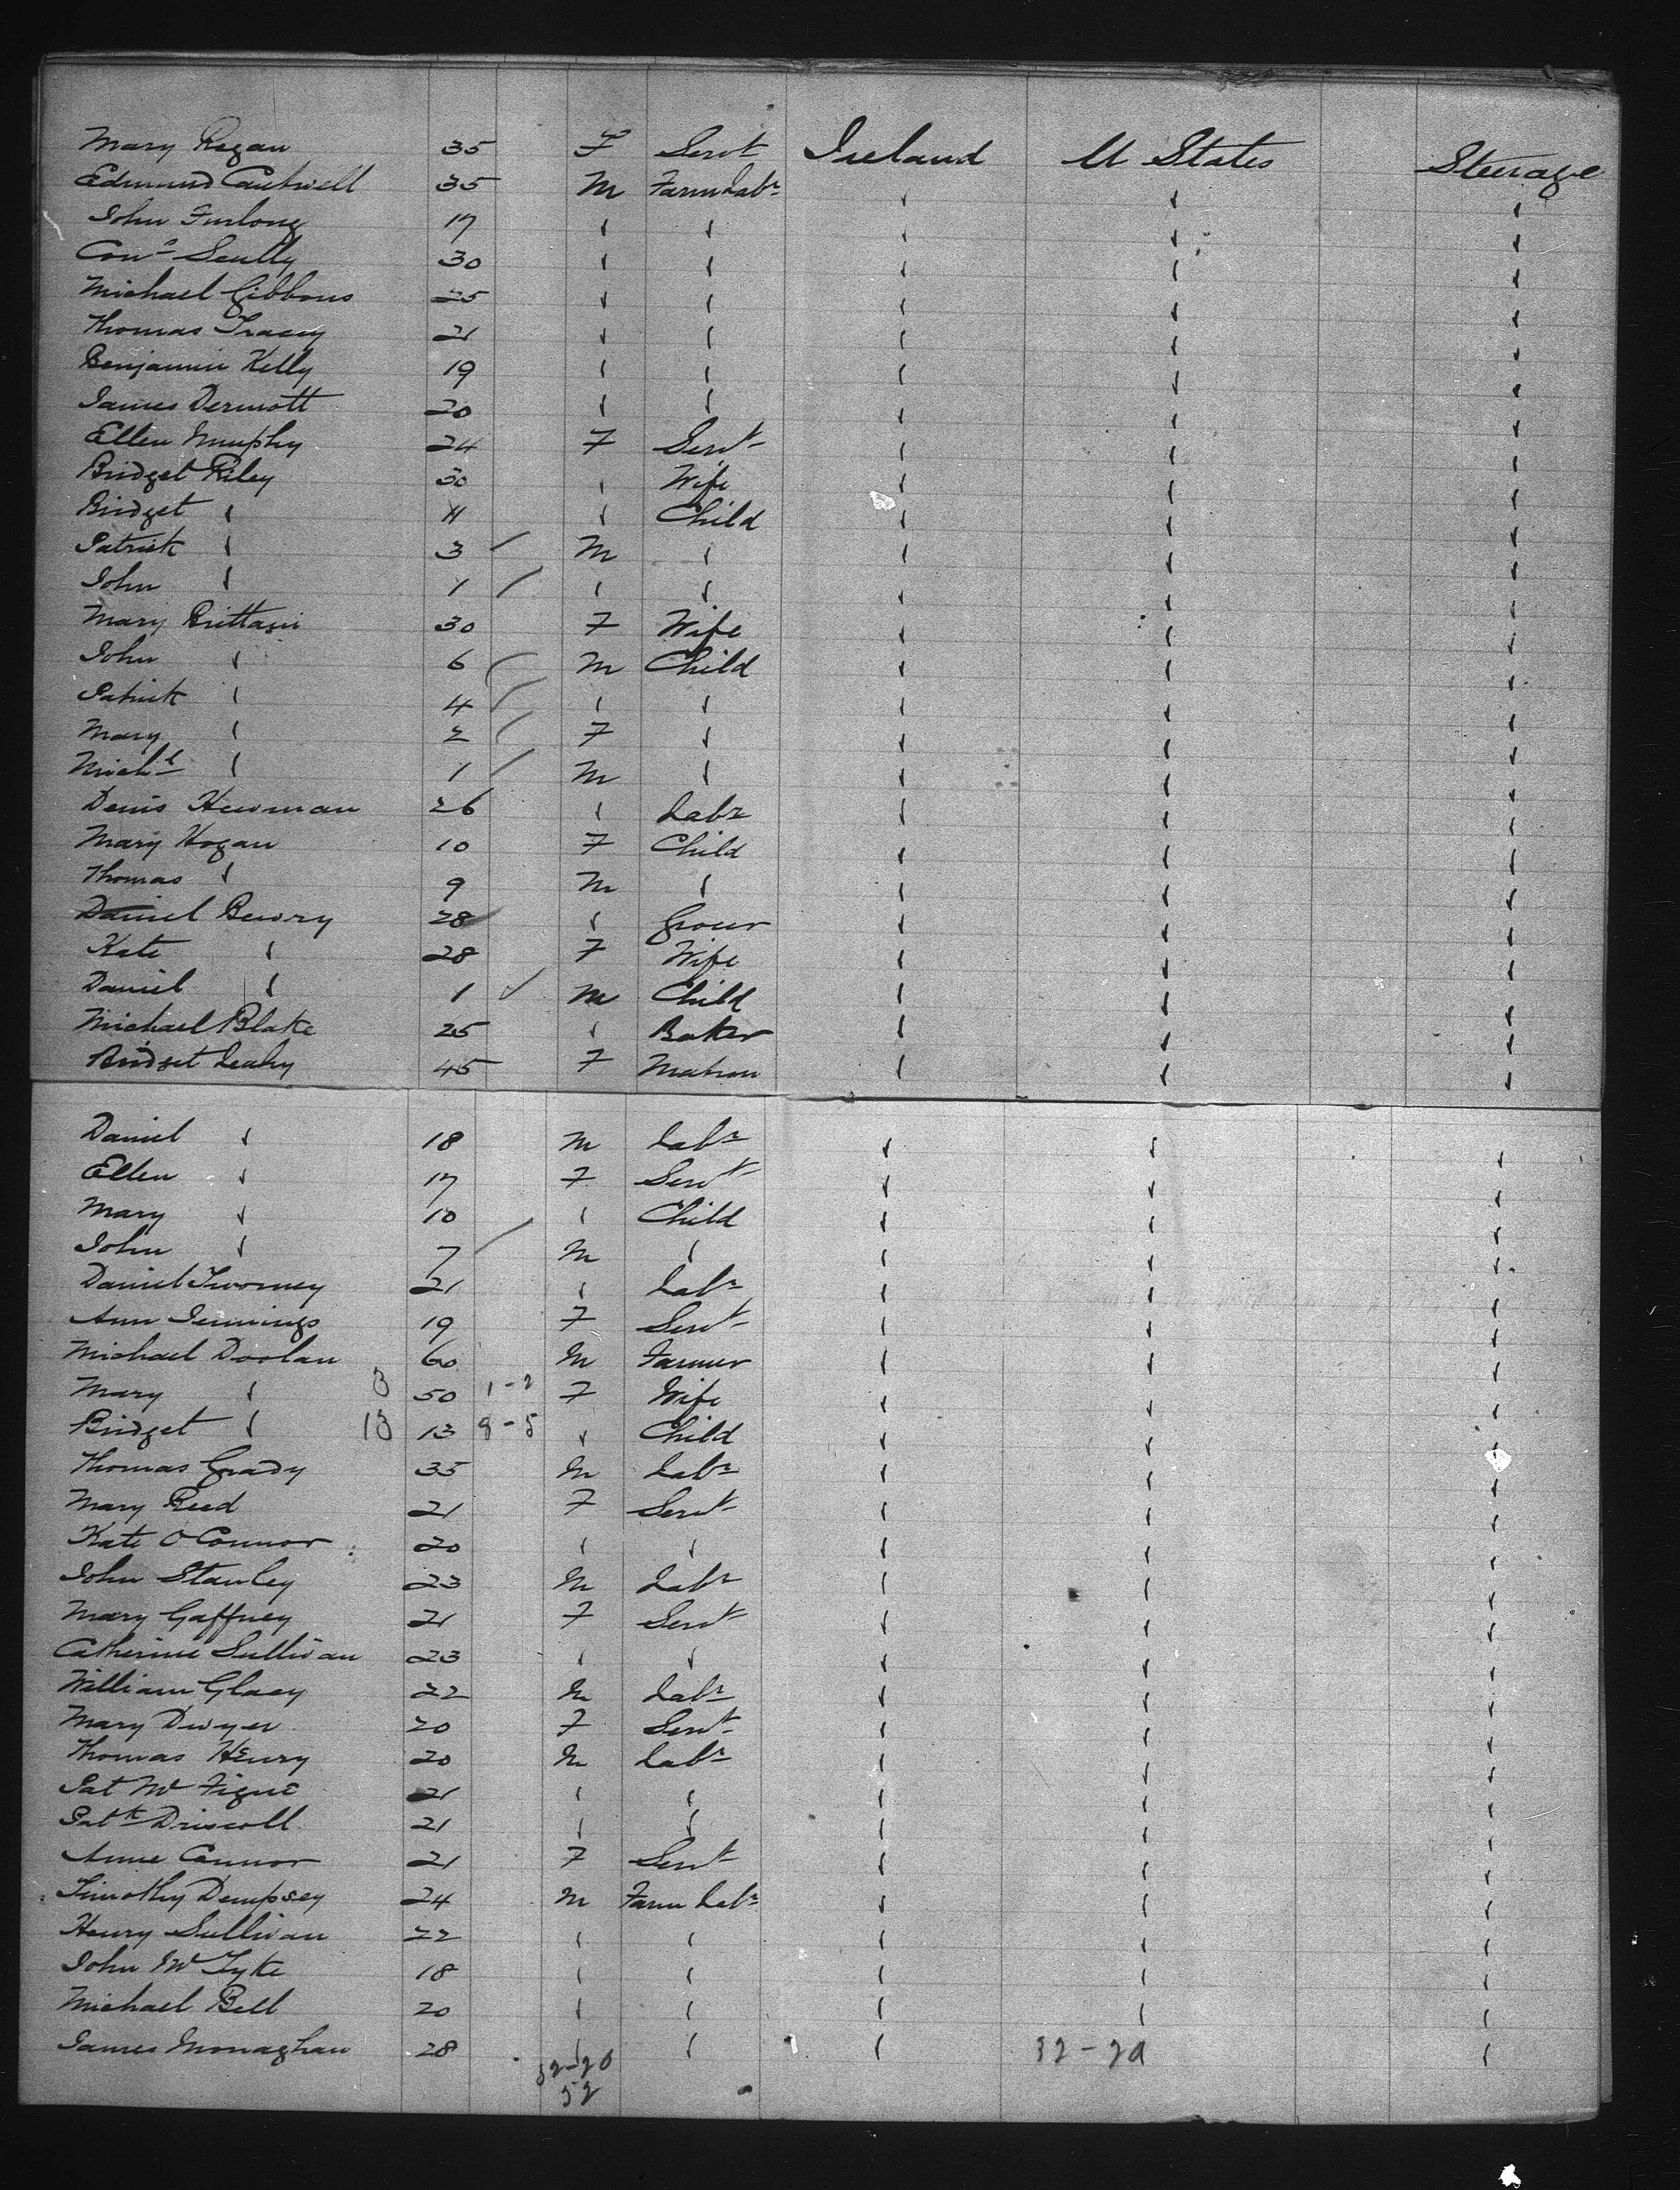 Mary Regan 35 F Servt Ireland U States Steerage
Edmund Cantwell 35 M Farm Labr " " "
John Furlong 17 " " " " "
Cors Scully 30 " " " " "
Michael Gibbons 25 " " " " "
Thomas Tracey 21 " " " " "
Benjamin Kelly 19 " " " " "
James Dermott 20 " " " " "
Ellen Murphy 24 F Servt " " "
Bridget Riley 30 " Wife " " "
Bridget " 11 " Child " " "
Patrick " 3 M " " " "
John " 1 " " " " "
Mary Brittain 30 F Wife " " "
John " 6 M Child " " "
Patrick " 4 " " " " "
Mary " 2 F " " " "
Michl " 1 M " " " "
Denis Hewman 26 " Labr " " "
Mary Hogan 10 F Child " " "
Thomas " 9 M " " " "
Daniel 28 " Grocer " " "
Kate " 28 F Wife " " "
Daniel " 1 M Child " " "
Michael Blake 25 " Baker " " "
Bridget Leahy 45 F Matron " " "
Daniel " 18 M Labr " " "
Ellen " 17 F Servt " " "
Mary " 10 " Child " " "
John " 7 M " " " "
Daniel Twomey 21 " Labr " " "
Ann Jennings 19 F Servt " " "
Michael Doolan 60 M Farmer " " "
Mary " 3 50 1-2 F Wife " " "
Bridget " 13 13 " Child " " "
Thomas Grady 35 M Labr " " "
Mary Reed 21 F Servt " " "
Kate O Connor 20 " " " " "
John Stanley 23 M Labr " " "
Mary Gaffney 21 F Servt " " "
Catherine Sullivan 23 " " " " "
William Glacy 22 M Labr " " "
Mary Dwyer 20 F Servt " " "
Thomas Henry 20 M Labr " " "
Pat Mc Figue 21 " " " " "
Patk Driscoll 21 " " " " "
Anne Connor 21 F Servt " " "
Timothy Dempsey 24 M Farm Labr " " "
Henry Sullivan 22 " " " " "
John Mc Tyke 18 " " " " "
Michael Bell 20 " " " " "
James Monaghan 28 " " " 32-20 "
52-20
52